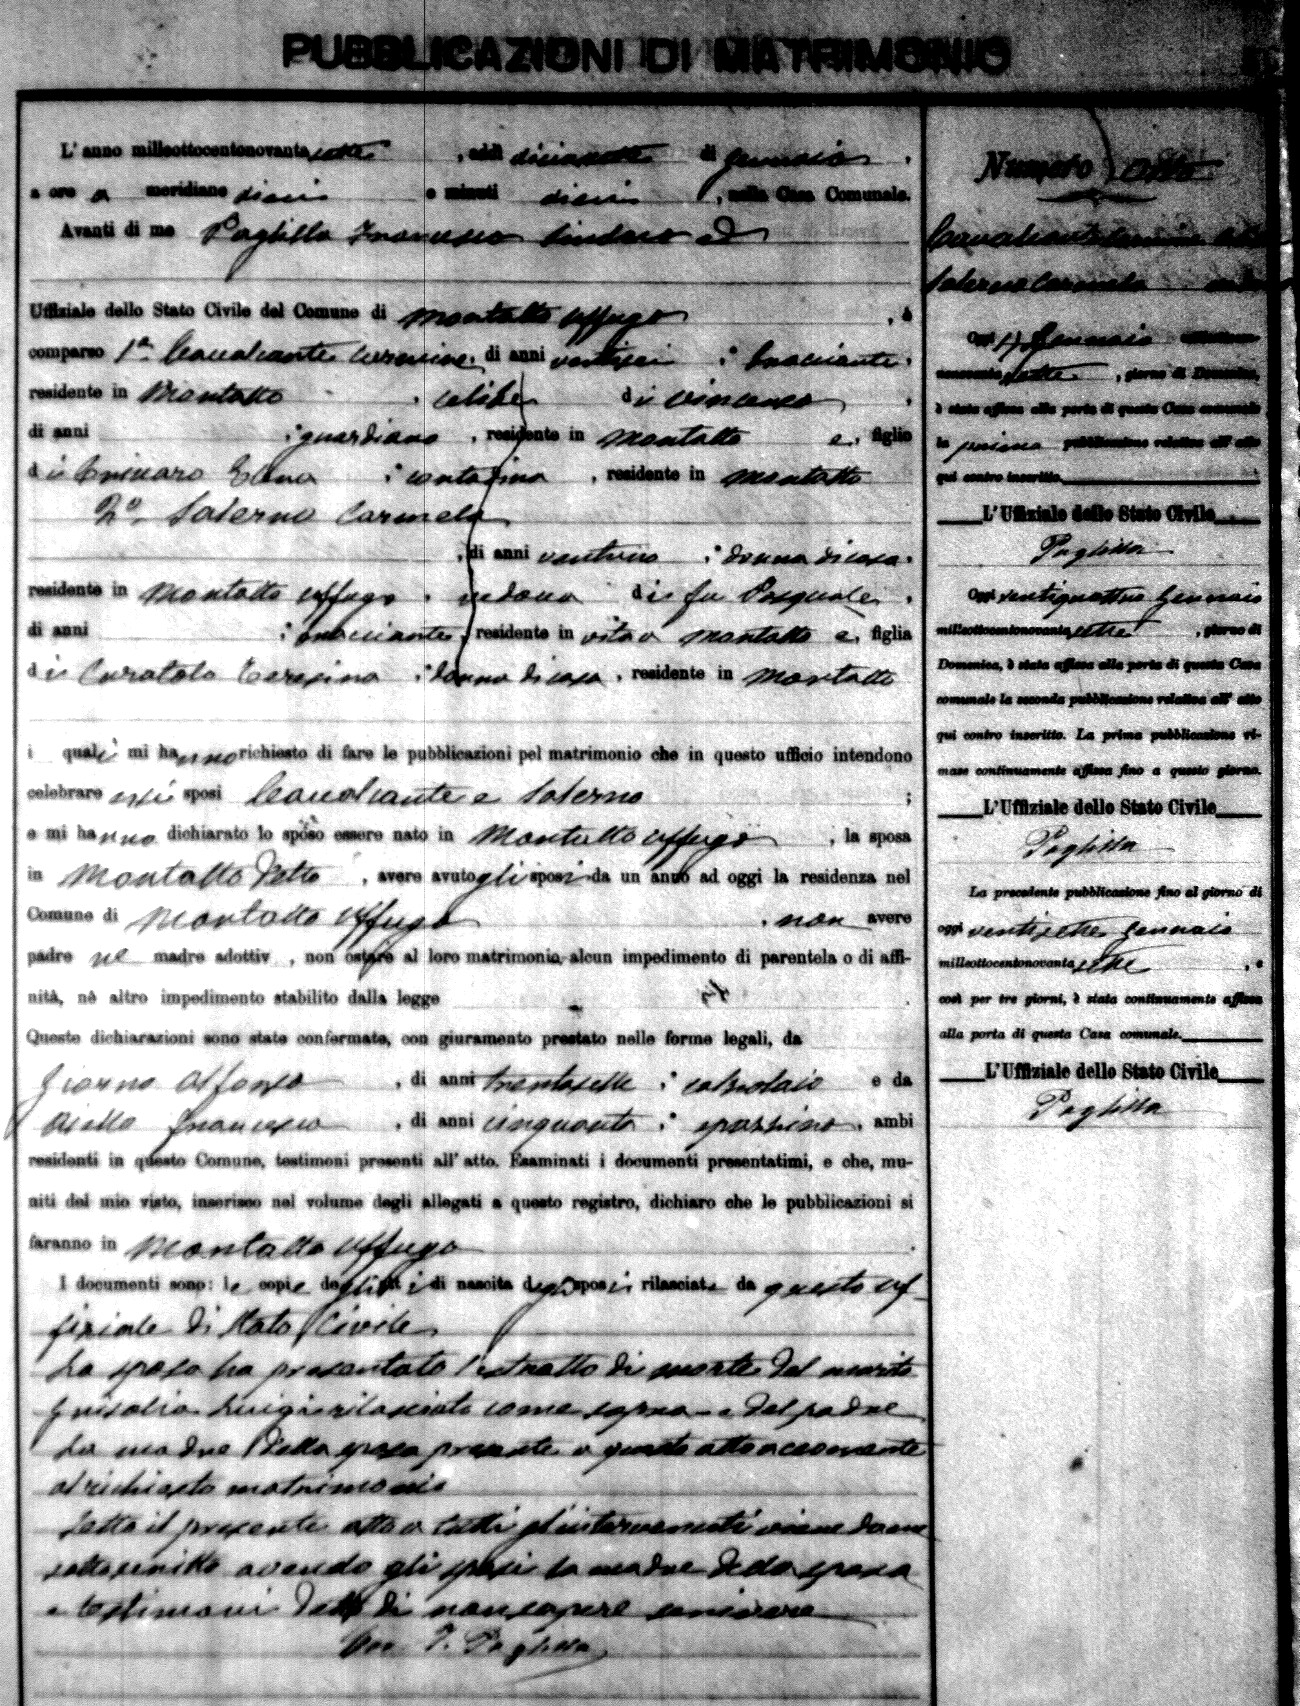 PUBBLICAZIONI DI MATRIMONIO
L'anno millottocentonovantasette, addì diciasette di Gennaio,
a ore a meridiane dieci e minuti dieci, nella Casa Comunale.
Avanti di me Paglilla Francesco Sindaco ed
Uffiziale dello Stato Civile del Comune di Montalto Uffugo, è
comparso 1° Cavalcante Carmine, di anni ventisei, bracciante,
residente in Montalto, celibe di Vincenzo,
di anni guardiano, residente in Montalto e, figlio
di Elena, contadina, residente in Montalto
2° Salerno Carmela
, di anni ventuno, donna di casa,
residente in Montalto Uffugo, vedova di fu Pasquale,
di anni bracciante, residente in vita a Montalto e, figlia
di Curatolo Teresina, donna di casa, residente in Montalto
i quali mi hanno richiesto di fare le pubblicazioni pel matrimonio che in questo ufficio intendono
celebrare essi sposi Cavalcante e Salerno ;
e mi hanno dichiarato lo sposo essere nato in Montalto Uffugo, la sposa
in Montalto detto, avere avuto gli sposi da un anno ad oggi la residenza nel
Comune di Montalto Uffugo, non avere
padre nè madre adottiv , non ostare al loro matrimonio alcun impedimento di parentela o di affi-
nità, nè altro impedimento stabilito dalla legge
Queste dichiarazioni sono state confermate, con giuramento prestato nelle forme legali, da
Giorno Alfonso, di anni trentasette, calzolaio e da
Aiello Francesco, di anni cinquanta, spazzino, ambi
residenti in questo Comune, testimoni presenti all'atto. Esaminati i documenti presentatimi, e che, mu-
niti del mio visto, inserisco nel volume degli allegati a questo registro, dichiaro che le pubblicazioni si
faranno in Montalto Uffugo
I documenti sono: le copie degli atti di nascita degli sposi rilasciate da questo uf-
fiziale di Stato Civile
La sposa ha presentato l'estratto di morte del marito
Grisolia Luigi rilasciato come sopra e del padre
La madre della sposa presente a questo atto acconsente
al richiesto matrimonio
Letto il presente atto a tutti gl'intervenuti viene da me
sottoscritto avendo gli sposi la madre della sposa
e testimoni detto di non sapere scrivere
F. Paglilla
Numero otto
Cavalcante Carmine
Salerno Carmela
Oggi 17 Gennaio milleottocento-
novantasette, giorno di Domenica,
è stata affissa alla porta di questa Casa comunale
la prima pubblicazione relativa all'atto
qui contro inscritto.
L'Uffiziale dello Stato Civile
Paglilla
Oggi ventiquattro Gennaio
milleottocentonovantasette, giorno di
Domenica, è stata affissa alla porta di questa Casa
comunale la seconda pubblicazione relativa all'atto
qui contro inscritto. La prima pubblicazione ri-
mase continuamente affissa fino a questo giorno.
L'Uffiziale dello Stato Civile
Paglilla
La precedente pubblicazione fino al giorno di
oggi ventisette Gennaio
milleottocentonovantasette, e
così per tre giorni, è stata continuamente affissa
alla porta di questa Casa comunale.
L'Uffiziale dello Stato Civile
Paglilla